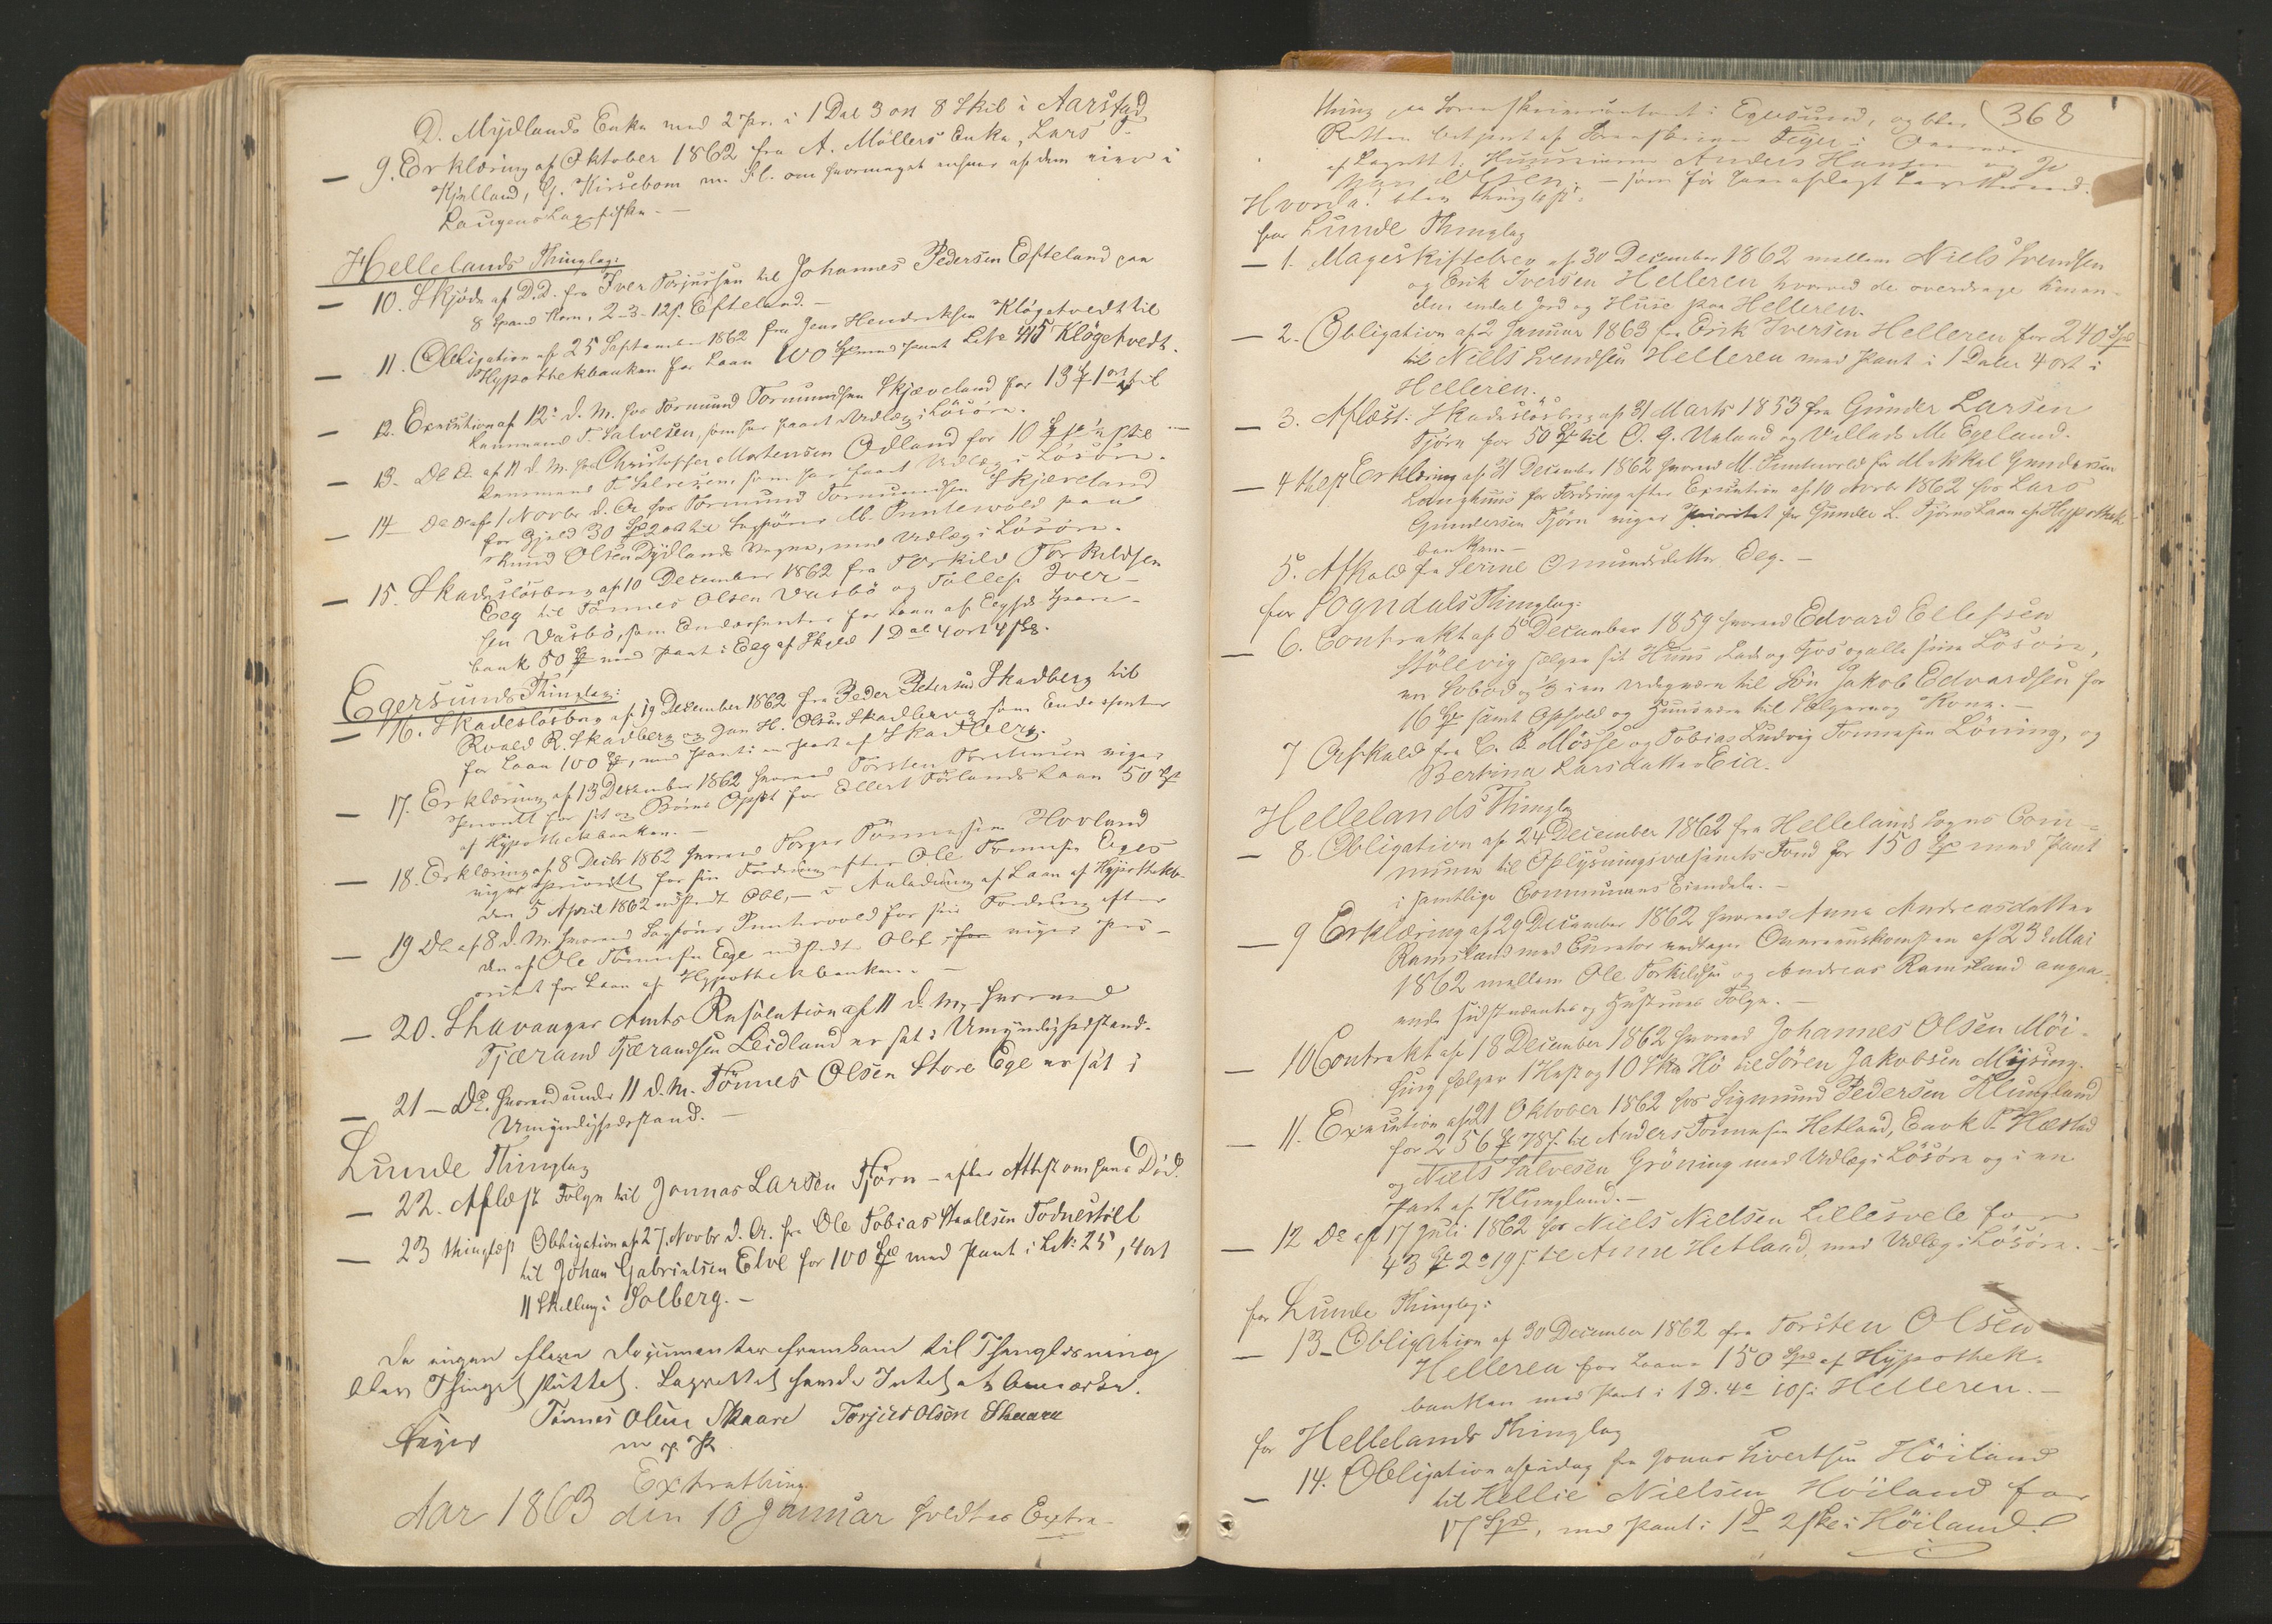 D. Mydlands Enke med 2 pr. i 1 Dal 3 ort 8 Skil i Aarstad
9. Erklæring af Oktober 1862 fra A. Möllers Enke, Lars T.
Kjelland, G. Kirsebom m. Fl. om hvormeget enhver af dem eier i
Laugens Laxefiske. —
Hellelands Thinglag:
10. Skjöde af D.D. fra Iver Torjussen til Johannes Pedersen Efteland paa
8 Spand Korn, 2-3-12 s. Efteland. —
11. Obligation af 25 September 1862 fra Jens Hendriksen Klögetvedt til
Hypothekbanken for Laan 100 Spd med Pant i 415 Klögetvedt.
12. Execution af 12te d. M. hos Tormund Tormundsen Skjæveland for 13 Spd 1 ort til
Kaupmand T. Salvesen, som har faaet Udlæg i Lösöre.
13. Do Do af 11 d. M. hos Christoffer Mortensen Ødland for 10 Spd til
Kaupmand T. Salvesen, som har faaet Udlæg i Lösöre.
14 — Do Do af 1 Novbr d. A. hos Tormund Tormundsen Skjæveland
for Gjæld 30 Spd 2 ort til Sagförer M. Puntervold paa
Knud Olsen Dydlands Vegne, med Udlæg i Lösöre.
15. Skadeslösbrev af 10 December 1862 fra Torkild Torkildsen
Eeg til Tönnes Olsen Vasbö og Tollef Iver-
sen Vasbö, som Endossenter for Laan af Egers. Spare-
bank 50 Spd med Pant i Eeg af Skyld 1 Dal 4 ort 4 sk.
Egersunds Thinglag:
16. Skadeslösbrev af 19 December 1862 fra Peder Petersen Skadberg til
Roald R. Skadberg og Jan H. Olsen Skadberg som Endossenter
for Laan 100 Spd, med Pant i en Part af Skadberg.
17. Erklæring af 13 December 1862 hvorved Torsten Torstensen viger
Prioritet for sit og Börns Ophold for Ellert Törlands Laan 50 Spd
af Hypothekbanken. —
18. Erklæring af 8 Decbr 1862 hvorved Torger Tönnesen Hovland
viger Prioritet for sin Fordring efter Ole Tönnesen Eges
den 5 April 1862 udstedt Obl, — i Anledning af Laan af Hypothekb.
19 Do af 8 d. M. hvorved Sagförer Puntervold for sin Fordring efter
den af Ole Tönnesen Ege udstedte Obl. for viger Pri-
oritet for Laan af Hypothekbanken. —
20. Stavanger Amts Resolution af 11 d. M., hvorved
Tjærand Tjærandsen Leidland er sat i Umyndighedsstand.
21 — Do. hvorved under 11 d. M. Tönnes Olsen Store Ege er sat i
Umyndighedsstand. —
Lunde Thinglag
22. Aflæst Folge til Jonnas Larsen Tjörn — efter Attest om hans Död.
23 thinglæst Obligation af 27 Novbr d. A. fra Ole Tobias Staallesen Todnestöl
til Johan Gabrielsen Elve for 100 Spd med Pant i L. No 25, 4 ort
11 Skilling i Solberg. —
Da ingen flere Documenter fremkom til Thinglæsning
blev Thinget sluttet. Lagrettet havde Intet at bemærke.
Feyer Tönnes Olsen Skaare Torjus Olsen Skaare
m. p. P.
Extrathing
Aar 1863 den 10 Januar holdtes Extra-
368
thing paa Sorenskriverkontoret i Egersund, og blev
Retten betjent af Sorenskriver Feyer i Overvær
af Lagrettet Huusmændene Anders Hansen og
Olsen. — som för have aflagt Lagretteseed.
Hvorda: blev thinglæst:
for Lunde Thinglag
1. Mageskiftebrev af 30 December 1862 mellem Niels Svendsen
og Erik Iversen Helleren hvorved de overdrage hinan-
den endel Jord og Huse paa Helleren.
2. Obligation af 2 Januar 1863 fra Erik Iversen Helleren for 240 Spd
til Niels Svendsen Helleren med Pant i 1 Daler 4 ort i
Helleren.
3. Aflæst: Skadeslösbrev af 31 Marts 1853 fra Gunder Larsen
Tjörn for 50 Spd til O. G. Ualand og Villads M. Egeland.
4 thlæst Erklæring af 31 December 1862 hvorved M. Puntervold for Mekkel Gundersen
Langhuus for Fordring efter Execution af 10 Novbr 1862 hos Lars
Gundersen Tjörn viger Prioritet for Gunder L. Tjörns Laan af Hypothek-
banken. —
5. Afkald fra Serine Omundsdatter Eeg. —
for Sogndals Thinglag:
6. Contrakt af 5 December 1859 hvorved Edvard Ellefsen
Stöllevig sælger sit Huus Lade og Fjös og alle sine Lösöre,
en Sobod og ½ i en Udegværn til Sön Jakob Edvardsen for
16 Spd samt Ophold og Huusvære til Sælgeren og Kone. —
7 Afkald fra C. B. Mösse og Tobias Ludvig Tönnesen Löning, og
Bertina Larsdatter Eia.
Hellelands Thinglag
8. Obligation af 24 December 1862 fra Hellelands Sogns Com-
mune til Oplysningsvæsenets Fond for 150 Spd med Pant
i samtlige Communens Eiendele. —
9 Erklæring af 29 December 1862 hvorved Anne Andreasdatter
Ramsland med Curator vedtager Overeenskomsten af 23de Mai
1862 mellem Ole Torkildsen og Andreas Ramsland angaa-
ende sidstnævntes og Hustrues Folge. —
10 Contrakt af 18 December 1862 hvorved Johannes Olsen Möi-
sing sælger 1 Hest og 10 Hö til Sören Jakobsen Mysing.
11. Execution af 21 Oktober 1862 hos Sigmund Pedersen Klungland
for 256 Spd 78 s. til Anders Tönnesen Hetland, Enok P. Hæstad
og Niels Salvesen Gröning med Udlæg i Lösöre og i en
Part af Klungland. —
12 Do af 17 Juli 1862 hos Niels Nielsen Lillesvele for
43 Spd 2 o 19 s. til Anne Hetland, med Udlæg i Lösöre. —
for Lunde Thinglag:
13 — Obligation af 30 December 1862 fra Torsten Olsen
Helleren for Laan 150 Spd af Hypothek-
banken med Pant i 1 D. 4 o 10 s. i Helleren. —
for Hellelands Thinglag
14. Obligation af idag fra Jonas Sivertsen Höiland
til Kellie Nielsen Höiland for
Spd, med Pant i 1 D 2 ske i Höiland.